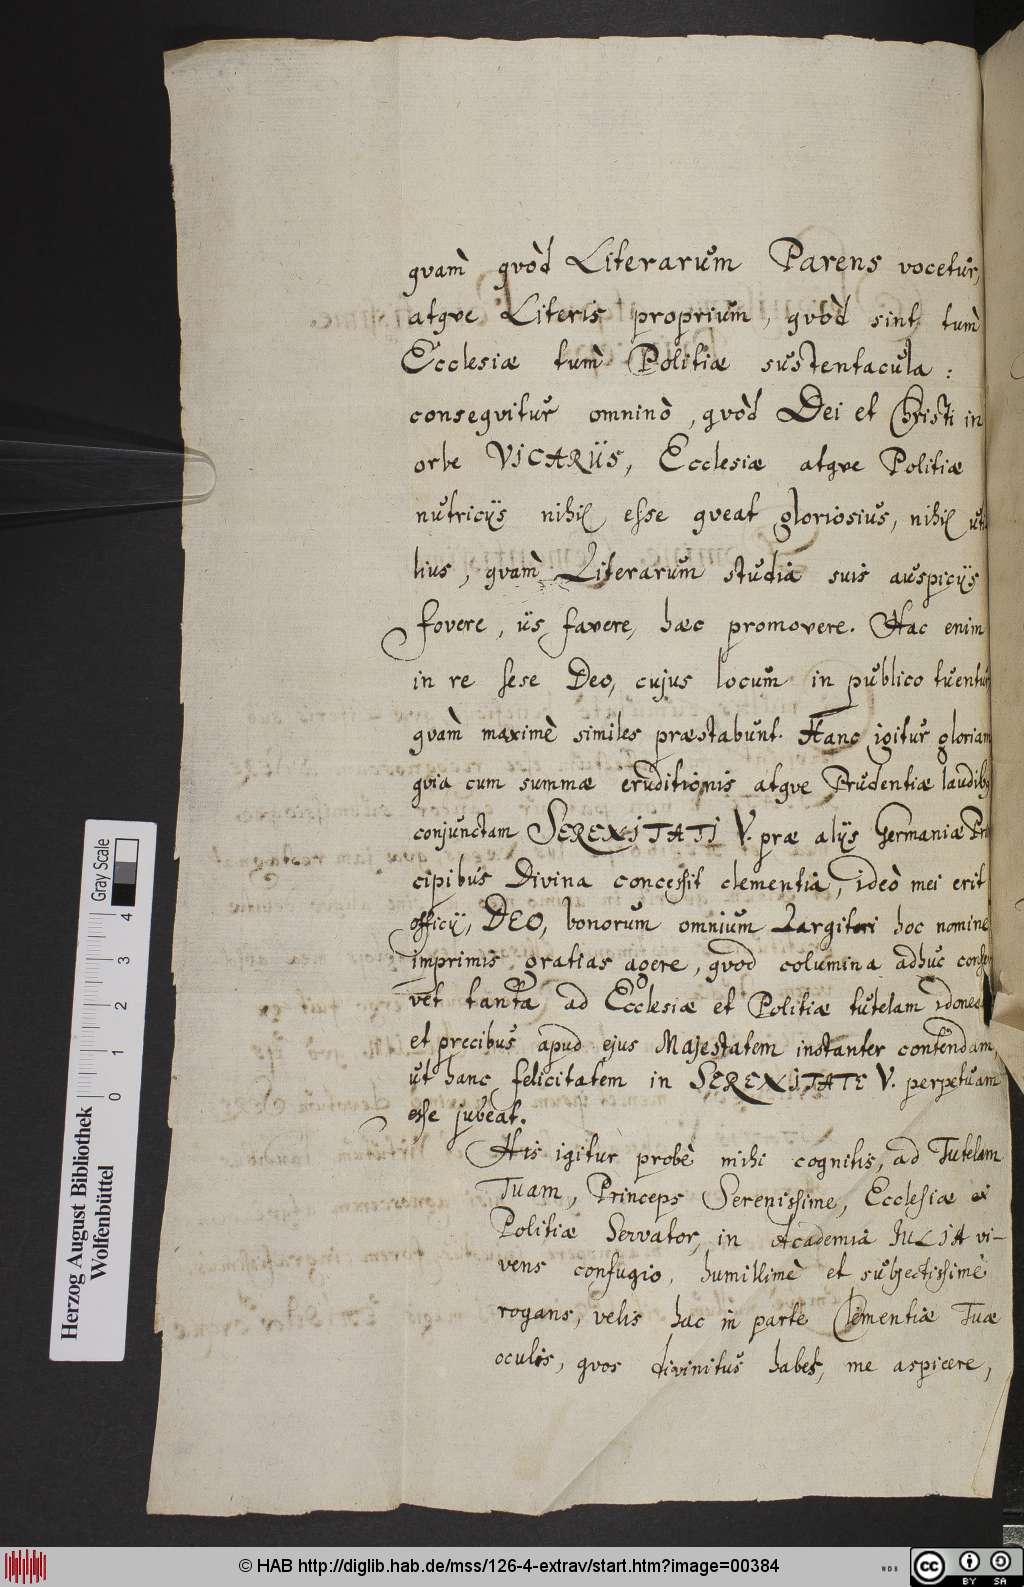 qvam̀ qvòd Literarum Parens vocetur,
atqve Literis proprium, qvòd sint tum̀
Ecclesiæ tum̀ Politiæ sustentacula:
conseqvitur omninò, qvòd Dei et Christi in
orbe VICARIIS, Ecclesiæ atqve Politiæ
nutricijs nihil esse qveat gloriosius, nihil uti
lius, qvam̀ Literarum studia suis auspicijs
fovere, iis favere, hæc promovere. Hac enim
in re sese Deo, cujus locum in publico tuentur
qvam̀ maximè similes præstabunt. Hanc igitur gloriam
qvia cum summæ eruditionis atqve Prudentiæ laudib9
conjunctam SERENITATI V. præ alijs Germaniæ Prin
cipibus Divina concessit clementia, ideò mei erit
officij, DEO, bonorum omnium Largitori hoc nomine
imprimis gratias agere, qvod columina adhuc conser
vet tanta ad Ecclesiæ et Politiæ tutelam idonea
et precibus apud ejus Majestatem instanter contendam,
ut hanc felicitatem in SERENITATE V. perpetuam
esse jubeat.
His igitur probè mihi cognitis, ad Tutelam
Tuam, Princeps Serenissime, Ecclesiæ et
Politiæ Servator, in Academiâ JULIA vi-
vens confugio, humillimè et subjectissimè
rogans, velis hac in parte Clementiæ Tuæ
oculis, qvos divinitus habes, me aspicere,
Herzog August Bibliothek
Wolfenbüttel
Gray Scale
0 1 2 3 4
© HAB http://diglib.hab.de/mss/126-4-extrav/start.htm?image=00384
WDB
cc BY SA